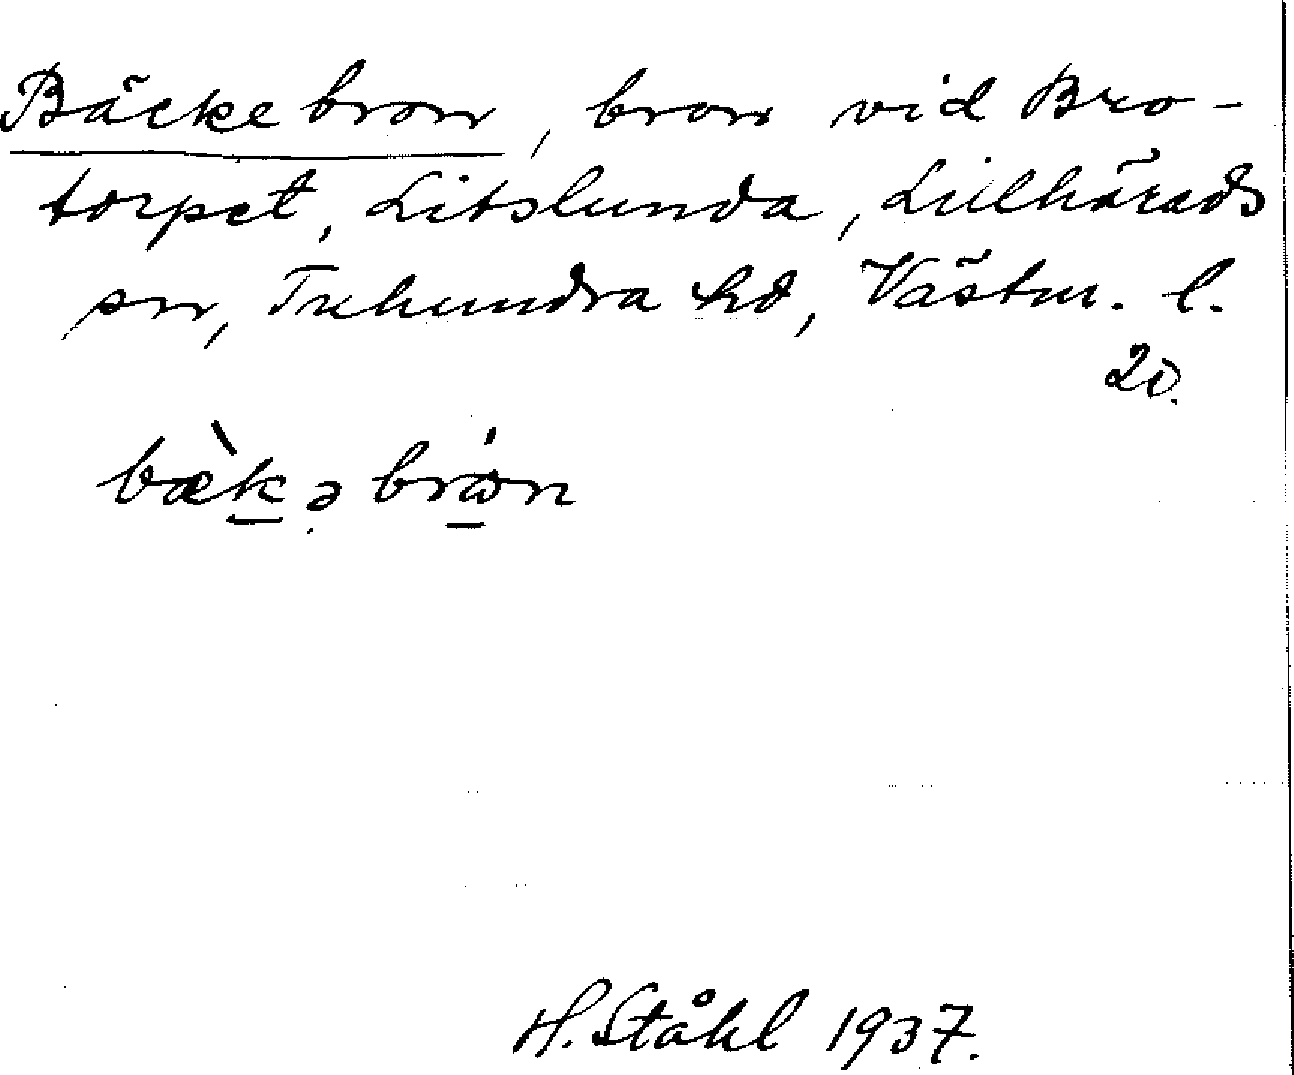 Bäckebron, bron vid Bro-
torpet, Litslunda, Lillhärads
sn, Tuhundra hd, Västm. l.
20.
bæ̀k̲ə brώ̲n
H. Ståhl 1937.